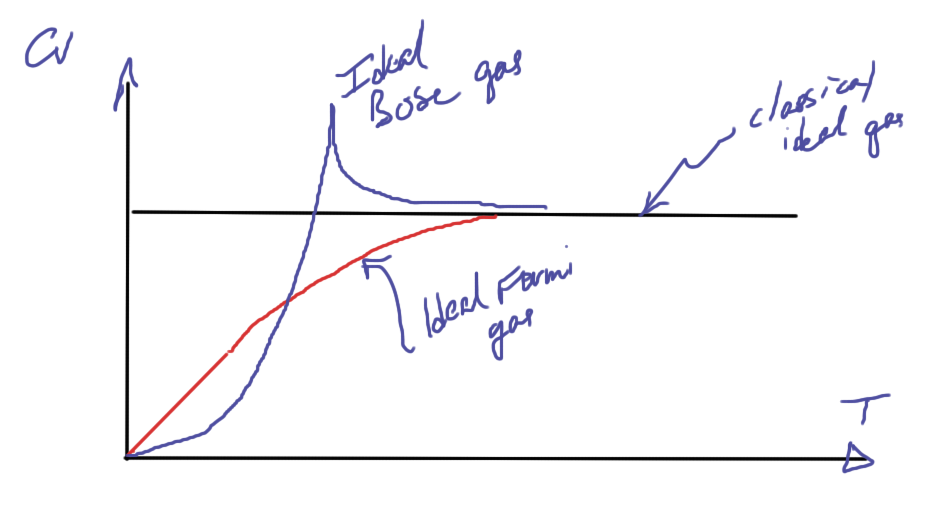 Cv
Ideal
Bose gas
classical
ideal gas
Ideal Fermi
gas
T